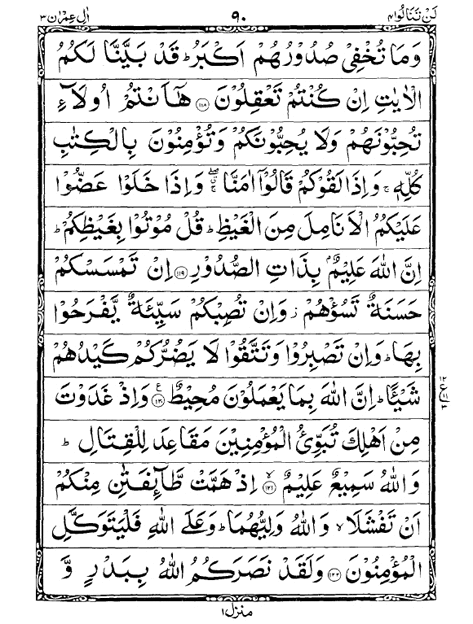 لَنْ تَنَالُوا ٤ ٩٠ اٰلِ عِمْرٰن ٣
وَمَا تُخْفِىْ صُدُوْرُهُمْ اَكْبَرُ ؕ قَدْ بَيَّنَّا لَكُمُ
الْاٰيٰتِ اِنْ كُنْتُمْ تَعْقِلُوْنَ ﴿۱۱۸﴾ هٰۤاَنْتُمْ اُولَآءِ
تُحِبُّوْنَهُمْ وَلَا يُحِبُّوْنَكُمْ وَتُؤْمِنُوْنَ بِالْكِتٰبِ
كُلِّهٖ ۚ وَاِذَا لَقُوْكُمْ قَالُوْۤا اٰمَنَّا ۖ وَاِذَا خَلَوْا عَضُّوْا
عَلَيْكُمُ الْاَنَامِلَ مِنَ الْغَيْظِ ؕ قُلْ مُوْتُوْا بِغَيْظِكُمْ ؕ
اِنَّ اللّٰهَ عَلِيْمٌۢ بِذَاتِ الصُّدُوْرِ ﴿۱۱۹﴾ اِنْ تَمْسَسْكُمْ
حَسَنَةٌ تَسُؤْهُمْ ز وَاِنْ تُصِبْكُمْ سَيِّئَةٌ يَّفْرَحُوْا
بِهَا ؕ وَاِنْ تَصْبِرُوْا وَتَتَّقُوْا لَا يَضُرُّكُمْ كَيْدُهُمْ
شَيْـًٔا ؕ اِنَّ اللّٰهَ بِمَا يَعْمَلُوْنَ مُحِيْطٌ ﴿۱۲۰﴾ ع وَاِذْ غَدَوْتَ
مِنْ اَهْلِكَ تُبَوِّئُ الْمُؤْمِنِيْنَ مَقَاعِدَ لِلْقِتَالِ ؕ
وَاللّٰهُ سَمِيْعٌ عَلِيْمٌ ﴿۱۲۱﴾ لا اِذْ هَمَّتْ طَّآئِفَتٰنِ مِنْكُمْ
اَنْ تَفْشَلَا لا وَاللّٰهُ وَلِيُّهُمَا ؕ وَعَلَى اللّٰهِ فَلْيَتَوَكَّلِ
الْمُؤْمِنُوْنَ ﴿۱۲۲﴾ وَلَقَدْ نَصَرَكُمُ اللّٰهُ بِبَدْرٍ وَّ
منزل ١